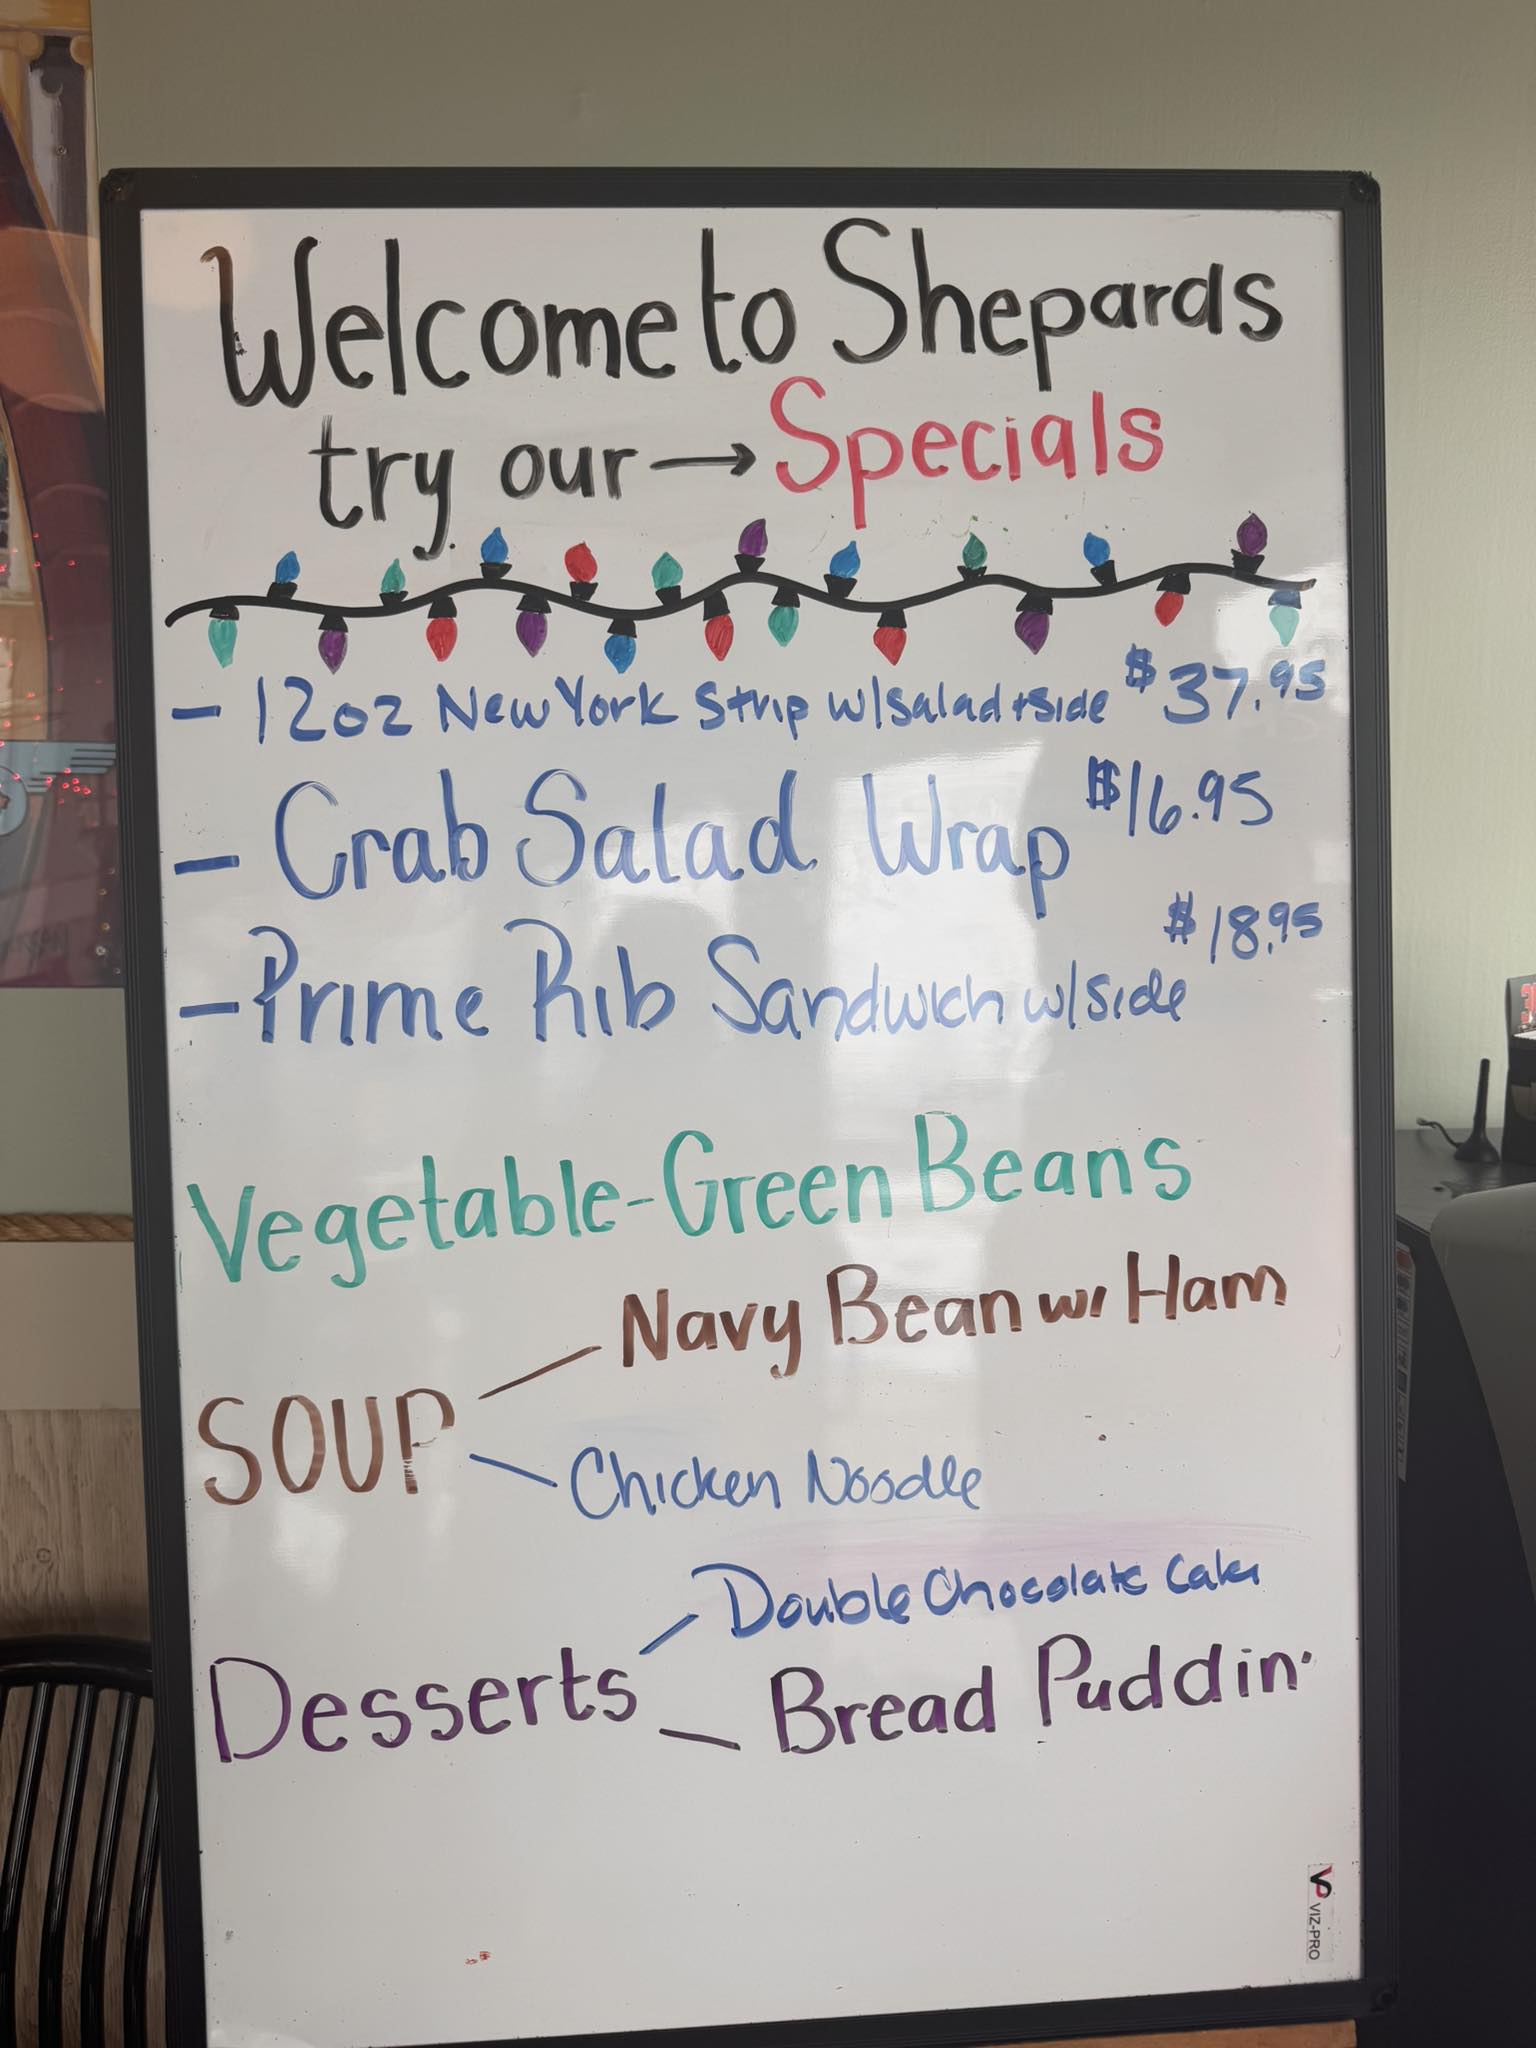 Welcome to Shepards
try our → Specials
- 12oz New York Strip w/salad + side $37.95
- Crab Salad Wrap $16.95
- Prime Rib Sandwich w/side $18.95
Vegetable - Green Beans
SOUP
Navy Bean w/ Ham
Chicken Noodle
Desserts
Double Chocolate Cake
Bread Puddin'
VIZ-PRO